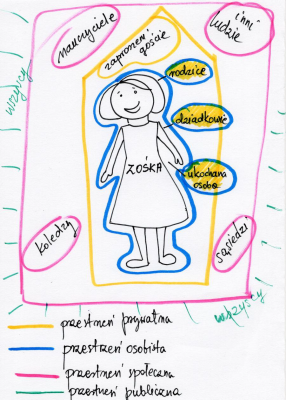 nauczyciele
inni
ludzie
zaproszeni
goście
wszyscy
rodzice
dziadkowie
ZOŚKA
ukochana
osoba
koledzy
sąsiedzi
wszyscy
przestrzeń prywatna
przestrzeń osobista
przestrzeń społeczna
przestrzeń publiczna